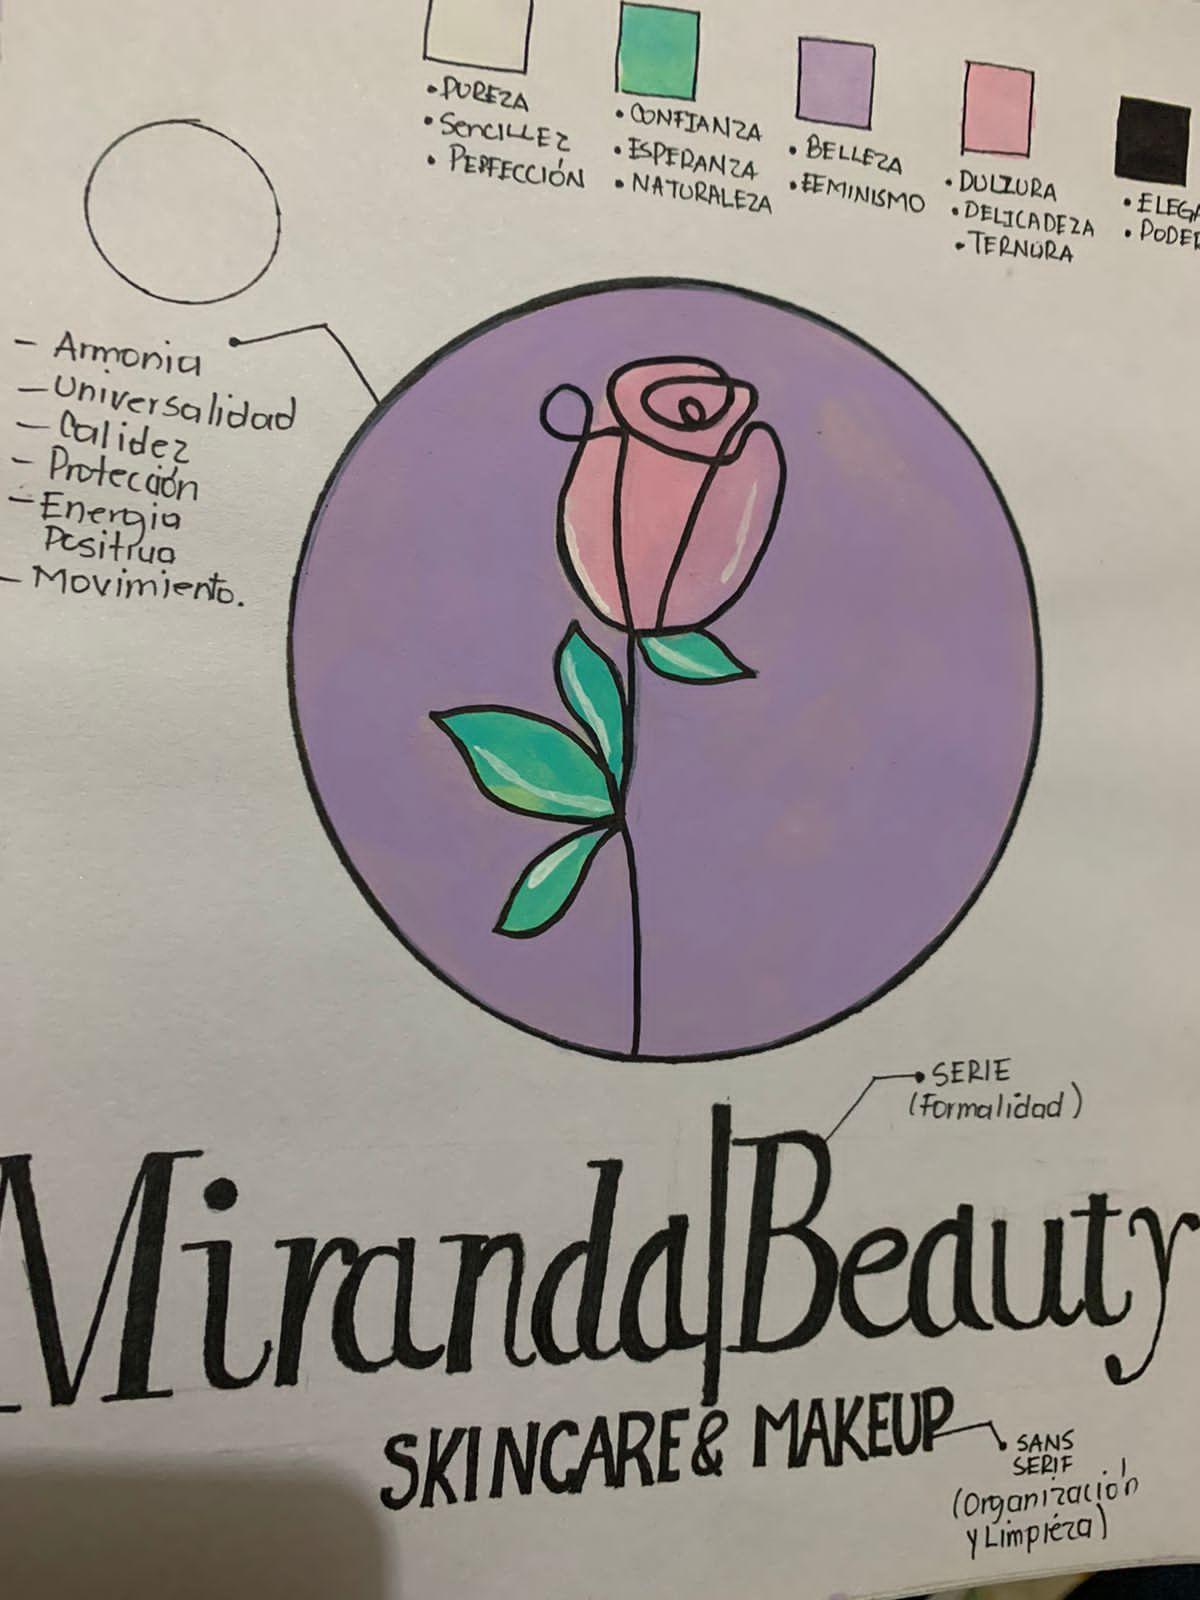 • PUREZA
• SenCILLEZ
• PERFECCIÓN
• CONFIANZA
• ESPERANZA
• NATURALEZA
• BELLEZA
• FEMINISMO
• DULZURA
• DELICADEZA
• TERNURA
• ELEGA
• PODER
- Armonia
- Universalidad
- Calidez
- Protección
- Energia
Positiva
- Movimiento.
• SERIE
(Formalidad)
Miranda|Beauty
SKINCARE & MAKEUP
• SANS
SERIF
(Organización
y Limpieza)